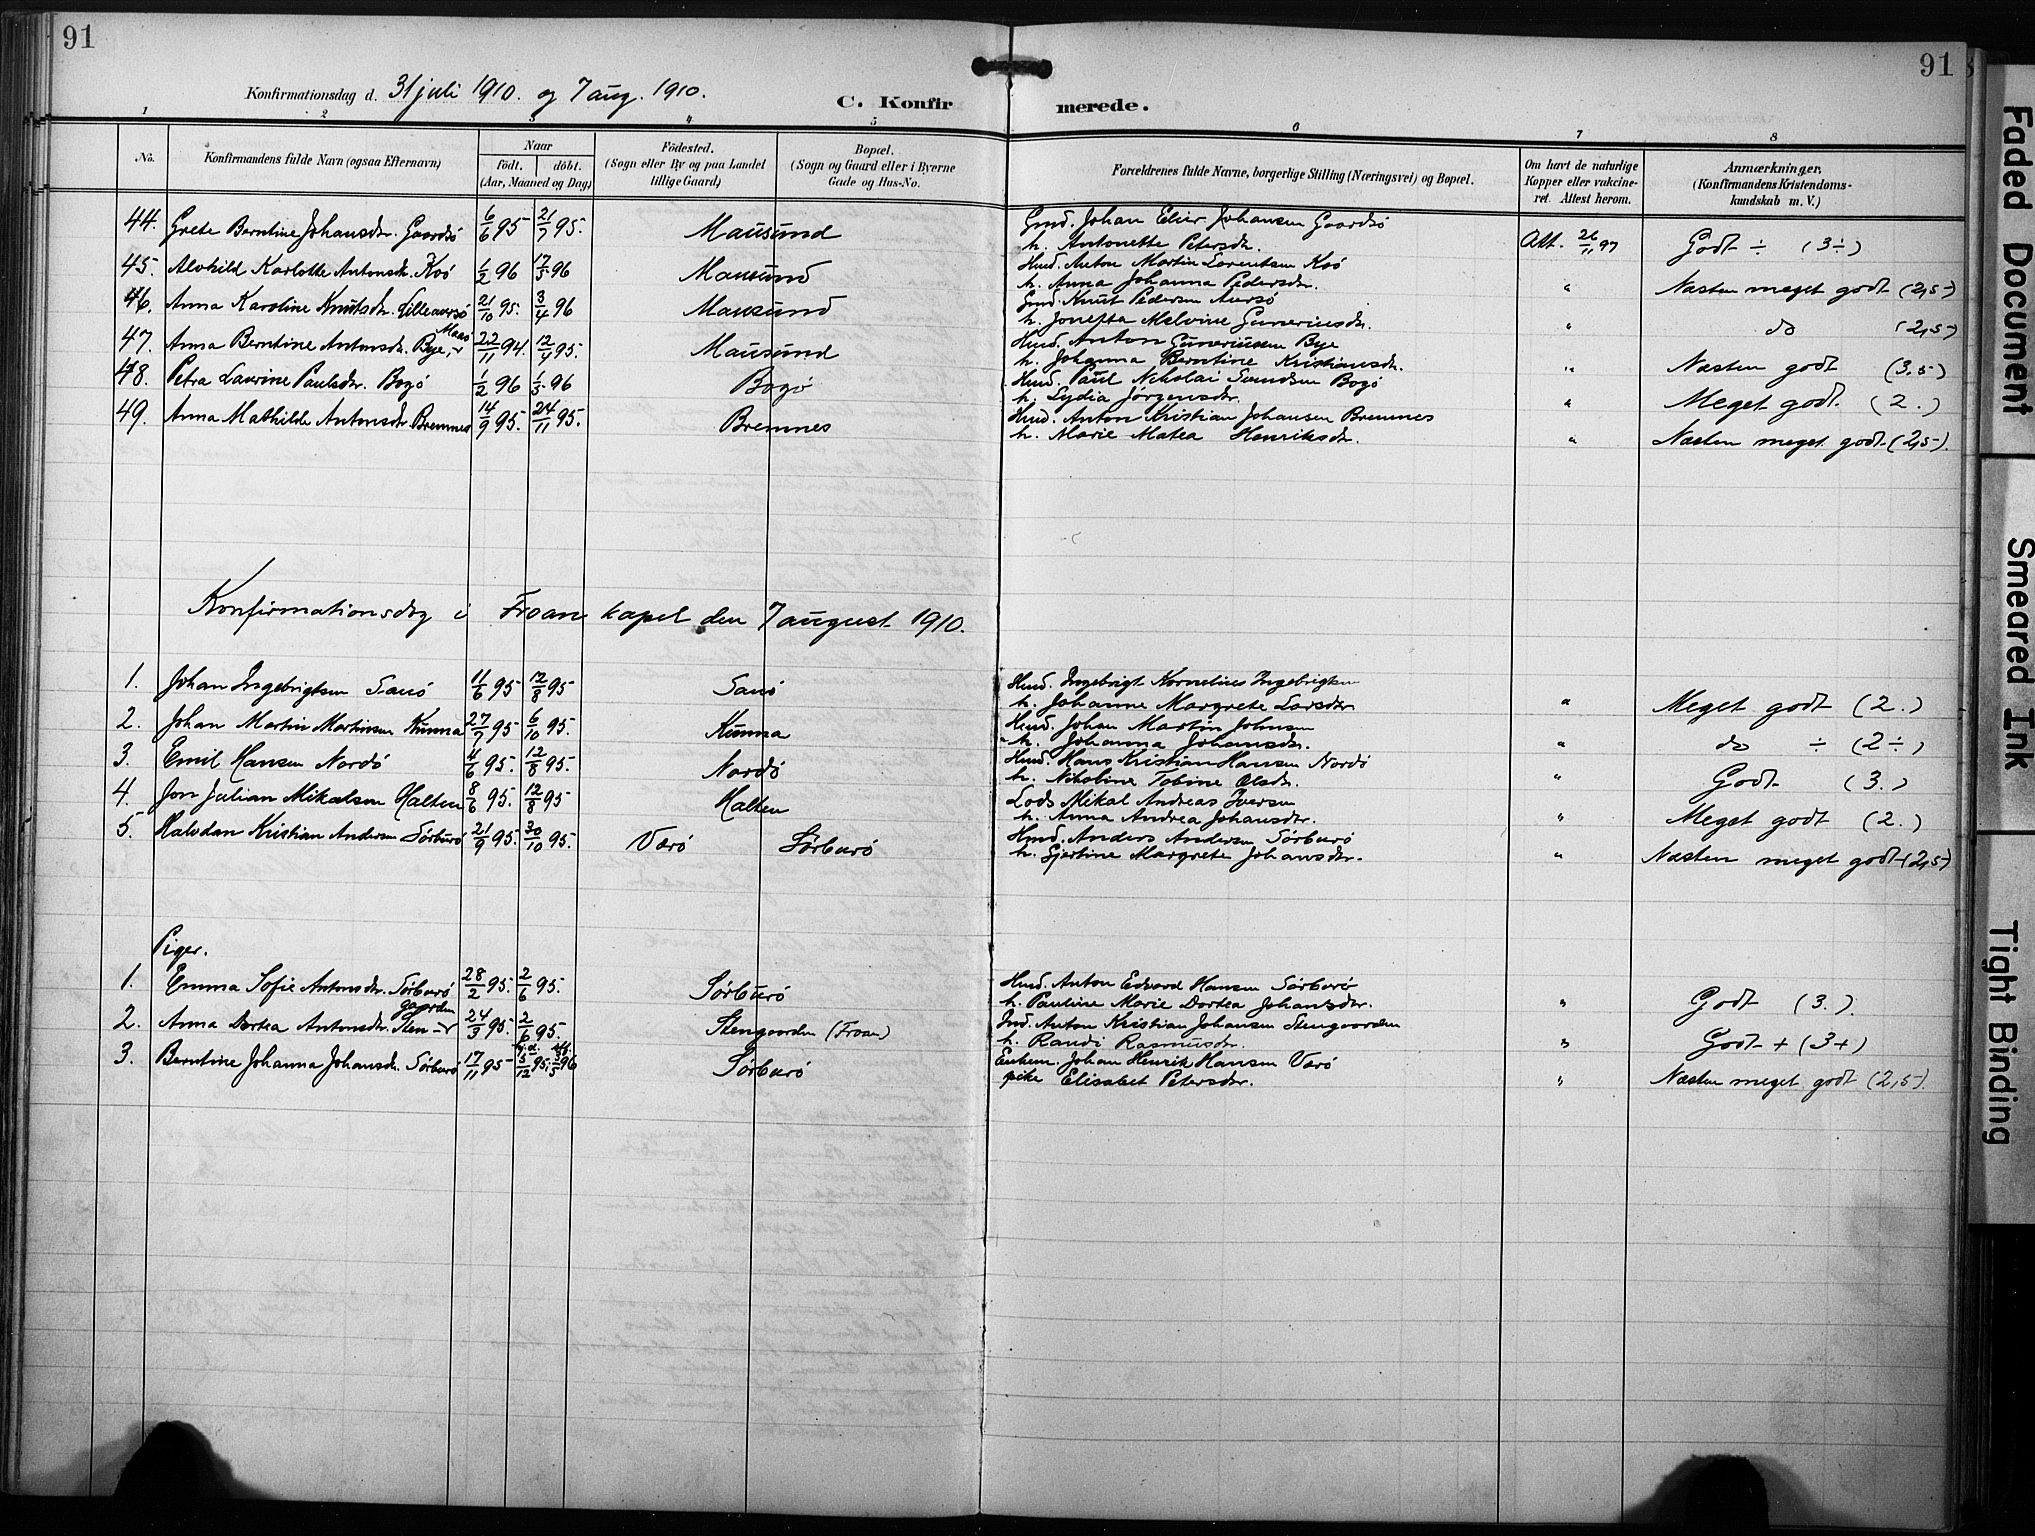 91
91
Konfirmationsdag d. 31 juli 1910. og 7 aug. 1910.
C. Konfirmerede.
1 2 3 4 5 6 7 8
No.
Konfirmandens fulde Navn (ogsaa Efternavn)
Naar
födt. döbt.
(Aar, Maaned og Dag)
Födested.
(Sogn eller By og paa Landet
tillige Gaard)
Bopæl.
(Sogn og Gaard eller i Byerne
Gade og Hus-No.
Forældrenes fulde Navne, borgerlige Stilling (Næringsvei) og Bopæl.
Om havt de naturlige
Kopper eller vakcine-
ret. Attest herom.
Anmærkninger.
(Konfirmandens Kristendoms-
kundskab m. V.)
44. Grete Berntine Johansdr. Gaardsö 6/6 95 21/7 95. Mausund
Gmd. Johan Elier Johansen Gaardsö
h. Antonette Petersdr. Att. 26/11 97 Godt ÷ (3÷)
45. Alvhild Karlotte Antonsdr. Kvö 1/2 96 17/5 96 Mausund
Husd. Anton Martin Lorentsen Kvö
h. Anna Johanna Pedersdr. " Næsten meget godt (2,5)
46. Anna Karoline Knutsdr. Lilleaursö 21/10 95. 3/4 96 Mausund
Gmd. Knut Pedersen Aursö
h. Jonetta Melvine Guneriusdr. " do (2,5)
47. Anna Berntine Antonsdr. Bye, Mausö 22/11 94. 12/4 95. Mausund
Husd. Anton Guneriussen Bye
h. Johanna Berntine Kristiansdr. " Næsten godt (3,5)
48. Petra Laurine Paulsdr. Bogö 1/2 96 1/3 96 Bogö
Husd. Paul Nikolai Svendsen Bogö
h. Lydia Jørgensdr. " Meget godt. (2.)
49. Anna Mathilde Antonsdr. Bremnes 14/9 95. 24/11 95. Bremnes
Husd. Anton Kristian Johansen Bremnes
h. Marie Matea Henriksdr. " Næsten meget godt (2,5).
Konfirmationsdag i Froan kapel den 7 august 1910.
1. Johan Ingebrigtsen Sauö 11/6 95 12/8 95 Sauö
Husd. Ingebrigt Kornelius Ingebrigtsen
h. Johanne Margrete Larsdr " Meget godt (2.)
2. Johan Martin Martinsen Kunna 27/7 95 6/10 95. Kunna
Husd. Johan Martin Johnsen
h. Johanna Johansdr. " do ÷ (2÷)
3. Emil Hansen Nordö 4/6 95. 12/8 95. Nordö
Husd. Hans Kristian Hansen Nordö
h. Nikoline Tobine Olsdr. " Godt (3.)
4. Jon Julian Mikalsen Halten 8/6 95. 12/8 95 Halten
Lods Mikal Andreas Iversen
h. Anna Andrea Johansdr. " Meget godt (2.)
5. Halvdan Kristian Andersen Sørburö 21/9 95. 30/10 95. Værö Sørburö
Husd. Anders Andersen Sörburö
h. Gjertine Margrete Johansdr. " Næsten meget godt (2,5)
Piger.
1. Emma Sofie Antonsdr. Sørburö 28/2 95. 2/6 95. Sørburö
Husd. Anton Edvard Hansen Sørburö
h. Pauline Marie Dortea Johansdr. " Godt (3.).
2. Anna Dortea Antonsdr. Sten-gaarden 24/3 95. 2/6 95. Stengaarden (Froan)
Ind. Anton Kristian Johansen Stengaarden
h. Randi Rasmusdr. " Godt + (3+)
3. Berntine Johanna Johansdr. Sørburö 17/11 95 hj.d. 15/12 95, 96 Sørburö
Enkem. Johan Henrik Hansen Værö
pike Elisabet Petersdr. " Næsten meget godt (2,5).
Faded Document
Smeared Ink
Tight Binding